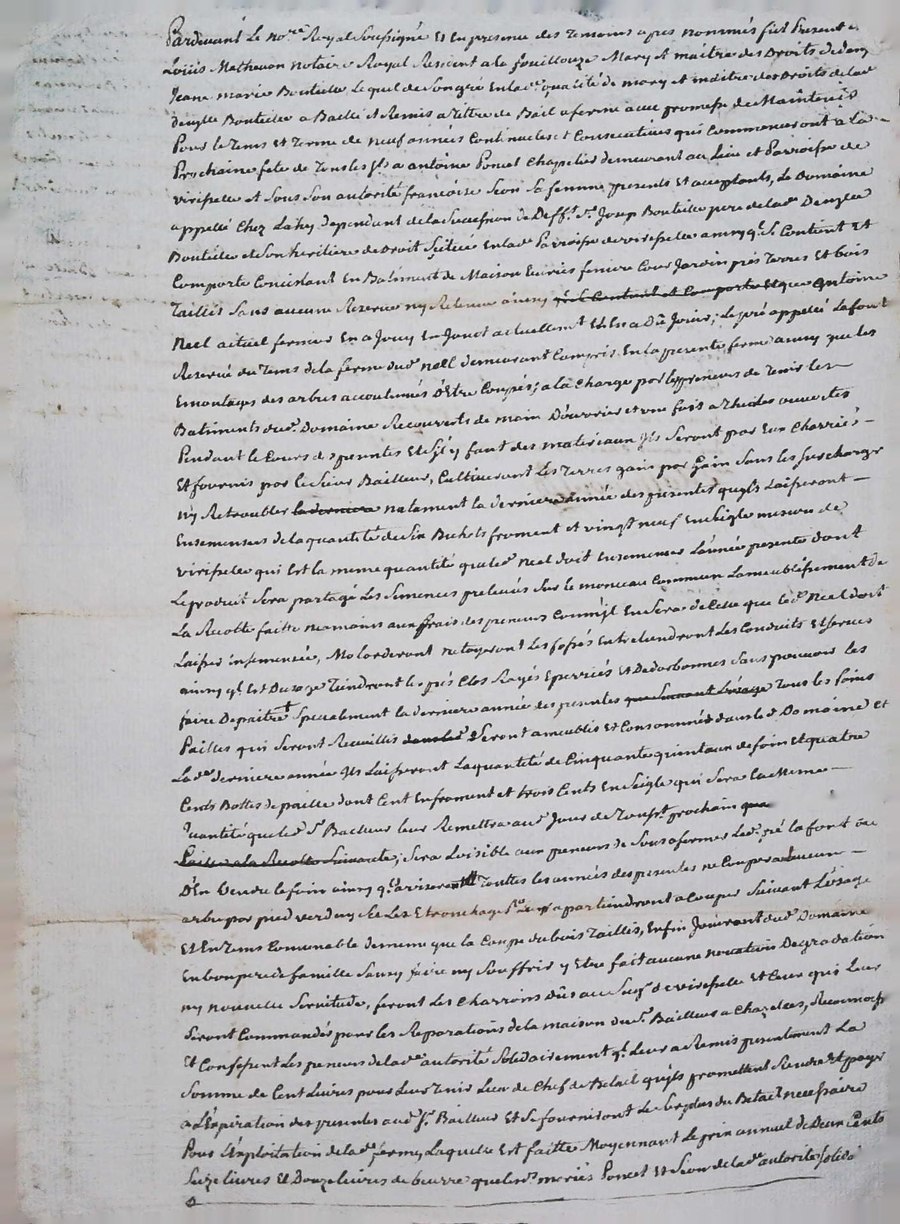 Pardevant Le no.re Royal Soussigné Et En presence des Temoins apres nommés fut Present
Loüis Matheuon notaire Royal Resident a la fouillouze Mary et maitre des Droits de
Jeane marie Bouteille Lequel de Son gré En lad. qualité de mary et maitre des Droits de lad.
Bouteille a Baillé et Remis a titre de Bail a ferme avec promesse de Maintenir
Pour le tems et terme de neuf années Continuelles et Consecutives qui Commenceront a La
Prochaine fete de Tous les St.s a antoine Poncet Chapelier demeurant au Lieu et Parroisse de
viricelle et Sous Son autorité françoise Seon Sa femme presents Et acceptants, Le Domaine
appellé Chez Lahy dependant de la Succession de Deff.t S.r Josep Bouteille pere de lad.
Bouteille et Son heritiere de Droit Scitué En lad. Parroisse de viricelle ainsy q.l Se Contient Et
Comporte Consistant En Batiment de Maison Ecuries feniere Cour Jardin prés Terres Et bois
Taillis Sans aucune Reserve ny Retenue ainsy q.l Se Contient et Comporte Et que Antoine
Neel actuel fermier En a Jouy En Jouit actuellem.t Et En a Dû Jouir, Le pré appellé La font
Reservé du Tems de la ferme dud. Neel demeurant Compris En la presente ferme ainsy que les
Emontages des arbres accoutumés D'Etre Coupés; a la Charge par les preneurs de Tenir les
Batiments dud. Domaine Recouverts de main D'ouvrier et une fois
Pendant le Cours des presentes Et S'il y faut des materiaux Ils Seront par Eux Charriés
Et fournis par le Sieur Bailleur, Cultiveront Les Terres gain par Gain Sans les Surcharger
ny Retroubler la derniere notament la derniere année des presentes qu'ils Laisseront
Ensemensées de la quantité de Six Bichets froment et vingt neuf En Seigle mesure de
viricelle qui Est la meme quantité que led. Neel doit Ensemencer L'année presente dont
Le produit Sera partagé Les Semences prelevées Sur le monceau Commun
La Recolte faitte neamoins aux frais des preneurs Comme Il En Sera de Celle que le d. Neel doit
Laisser insemencée, nétoyeront Les fossés Entretiendront Les Conduits Et
ainsy q.l Est Dusage Tiendront les prés Clos Rayés Eperriés Et Dedarbonnés Sans pouvoir les
faire Depaitre Specialment la derniere année des presentes que Suivant L'usage Tous les foins
Pailles qui Seront Recueillis dans led. Seront ameublis et Consommés dans le d. Domaine Et
La d.e derniere année Ils Laisseront La quantité de Cinquante quintaux de foin Et quatre
Cents Bottes de paille dont Cent En froment et trois Cents En Seigle qui Sera La Meme
quantité que le d. S.r Bailleur leur Remettra aud. Jour de Touss.t prochain que
La Recolte Suivante; Sera Loisible aux preneurs de Sous affermer Led. pré la font ou
D'En Vendre le foin ainsy q.l aviseront Touttes les années des presentes ne Couperont aucun
arbre par pied verd ny Sec Les Etronchages a Couper Suivant L'usage
Et En Tems Convenable de meme que la Coupe du bois Taillis, Enfin Jouiront dud. Domaine
En bon pere de famille Sans y faire ny Souffrir y Etre fait aucune novation Degradation
ny nouvelle Servitude, feront Les Charrois dûs au Seig.r de viricelle Et Ceux qui Leur
Seront Commandés pour les Reparations de la maison du S.r Bailleur a Chazelles, Reconnoiss.t
Et Confessent Les preneurs de lad.e autorité Solidairement q.l Leur a Remis presentement La
Somme de Cent Livres pour Leur Tenir Lieu de Chef de Betail qu'ils promettent Rendre Et payer
a L'Expiration des presentes aud. S.r Bailleur Et Se fourniront Le Surplus du Betail necessaire
Pour L'Exploitation de lad.e ferme, Laquelle Est faitte Moyennant Le prix annuel de Deux Cents
Seize livres Et Douze livres de beurre que les d. mariés Poncet Et Seon de la d.e autorité Solid.